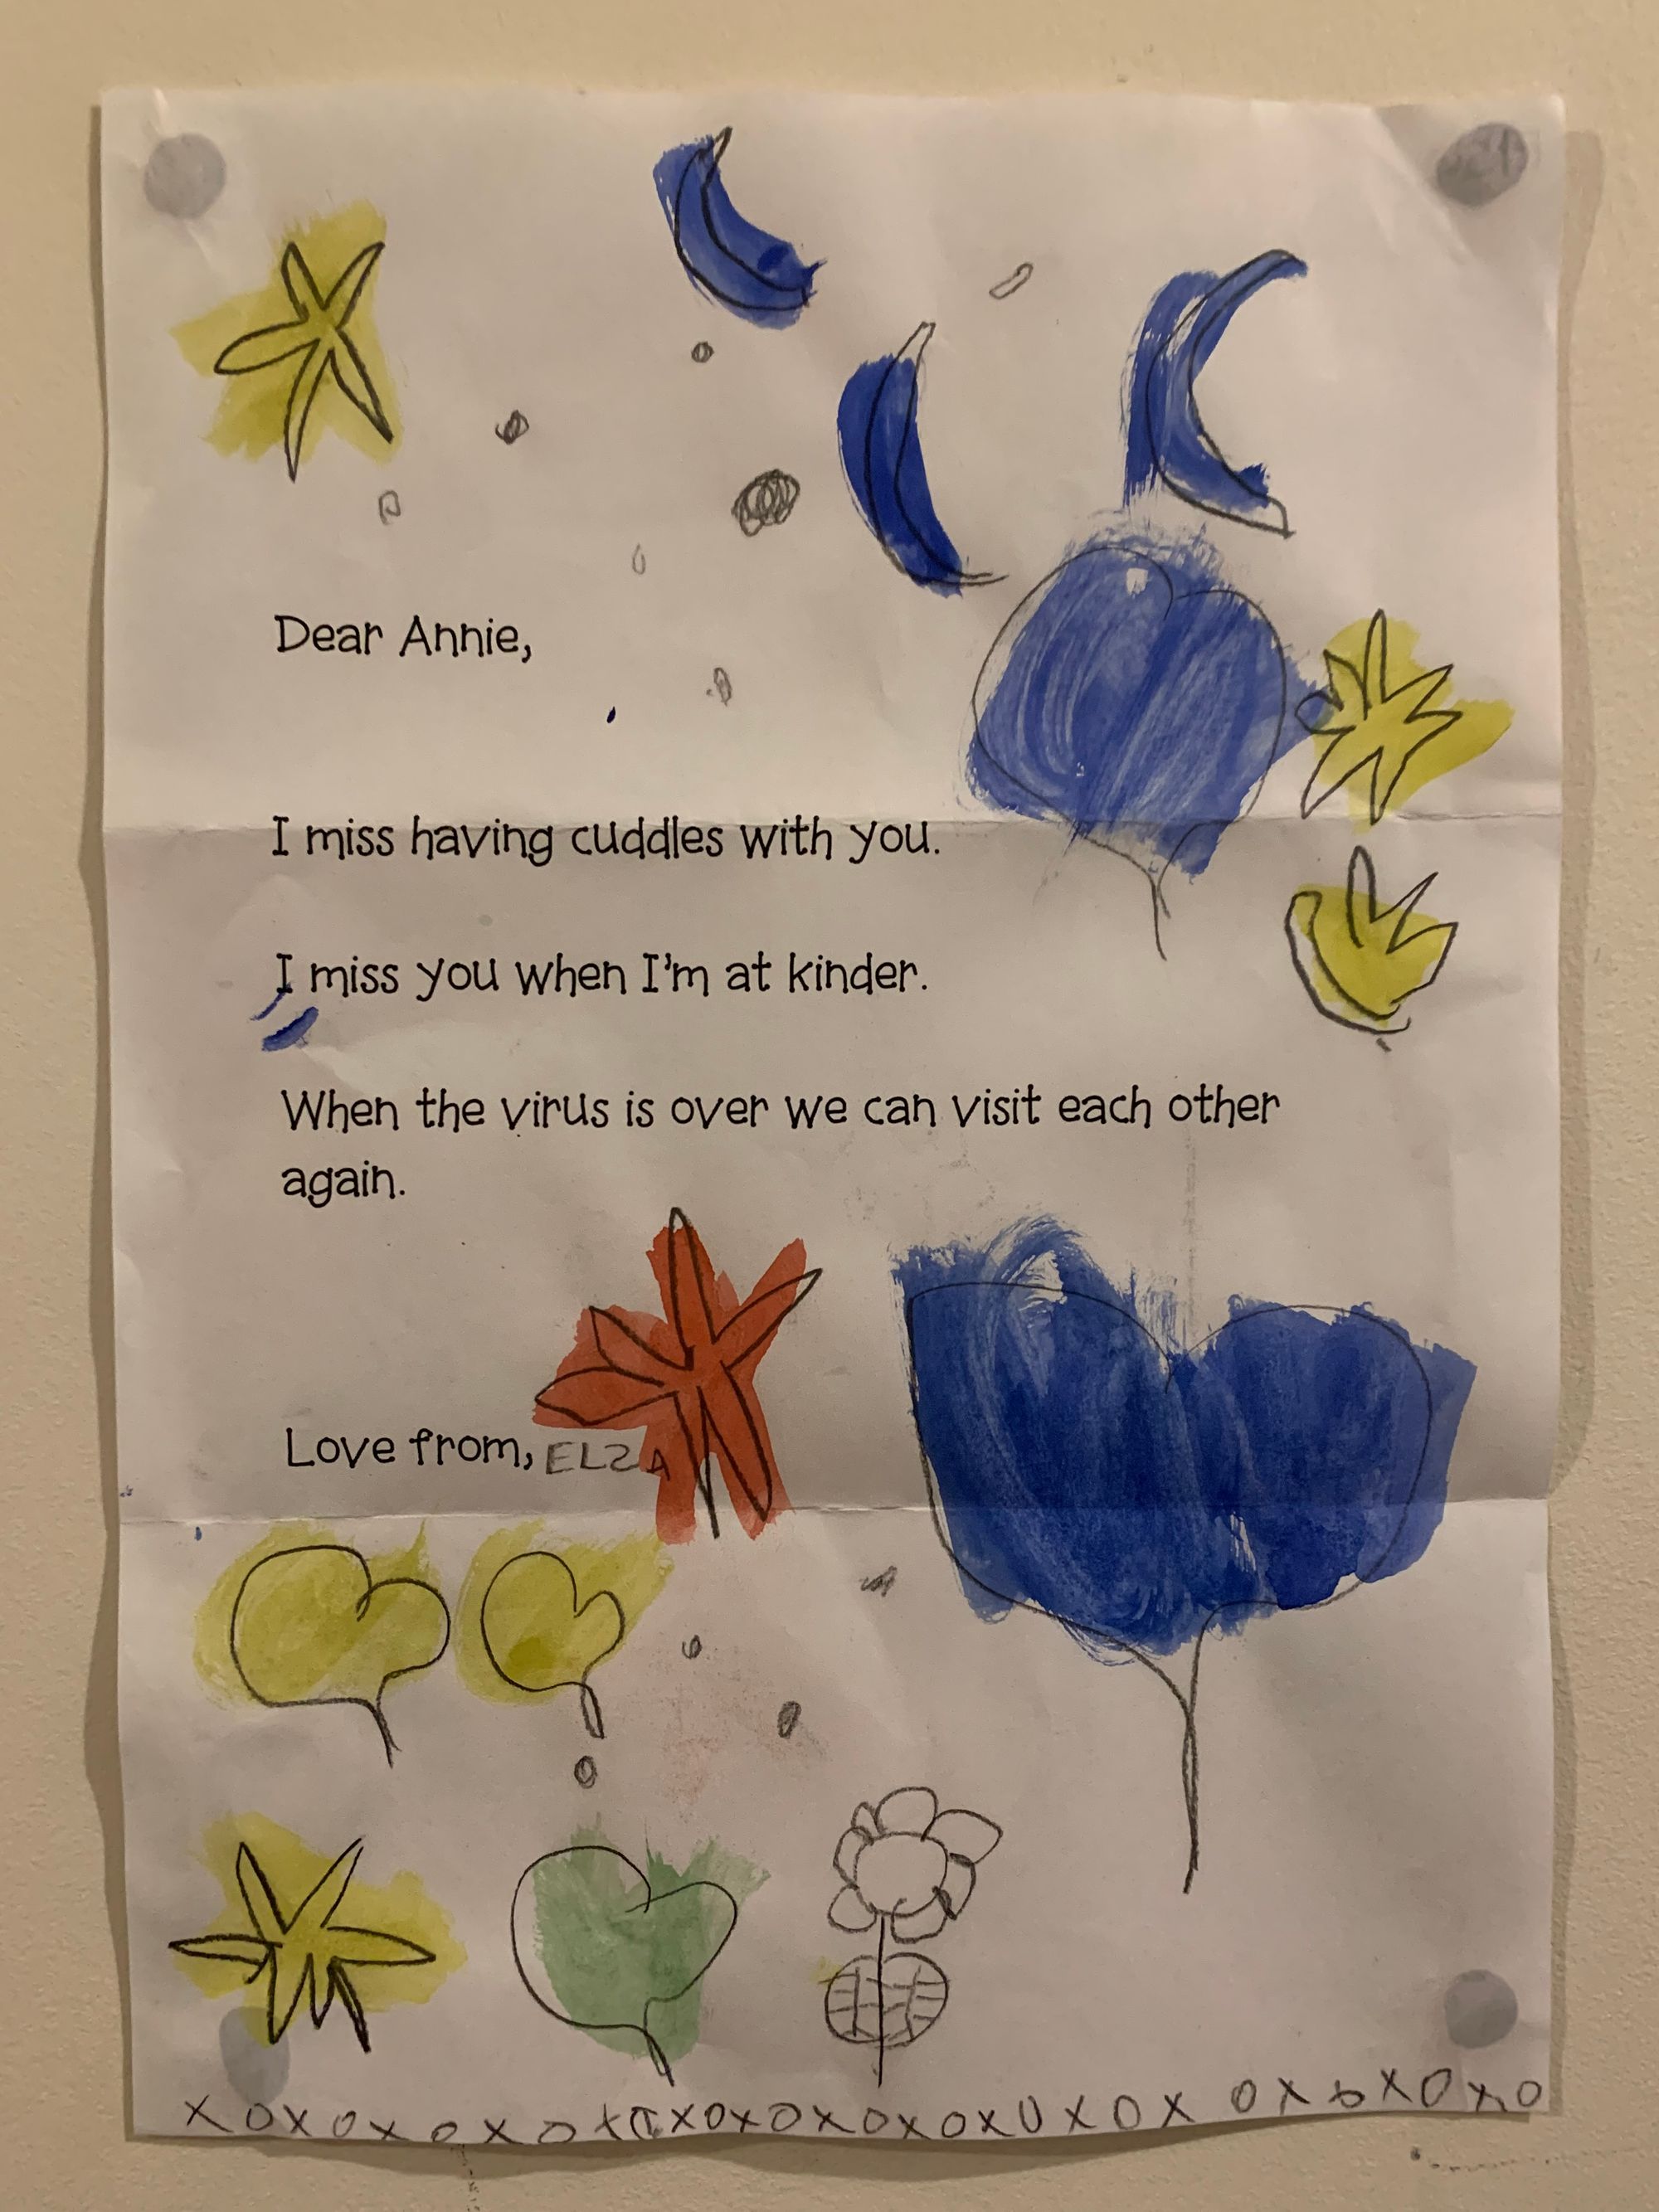 Dear Annie,
I miss having cuddles with you.
I miss you when I'm at kinder.
When the virus is over we can visit each other
again.
Love from, ELZA
X O X O X O X O X O X O X O X O X O X U X O X O X O X O X O